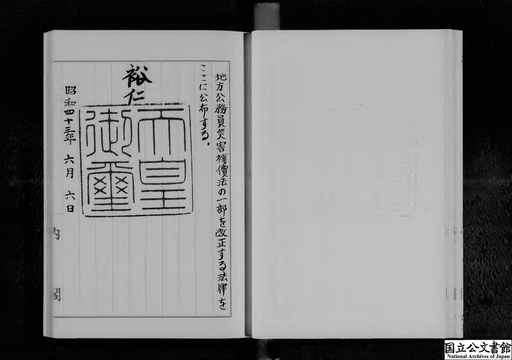 地方公務員災害補償法の一部を改正する法律を
ここに公布する。
裕仁
天皇
御璽
昭和四十三年六月六日
内閣
国立公文書館
National Archives of Japan